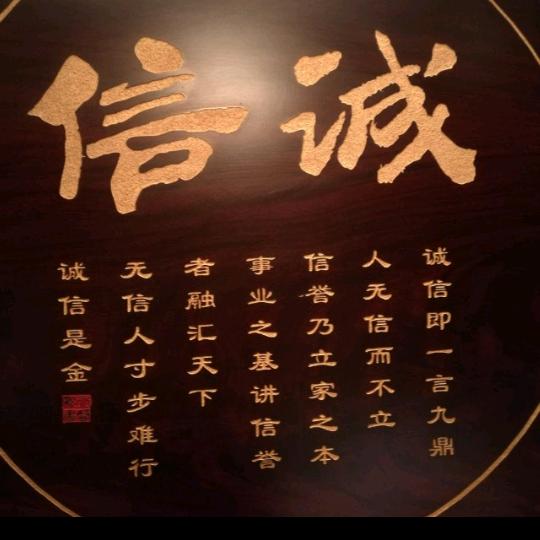 诚信
诚信即一言九鼎
人无信而不立
信誉乃立家之本
事业之基讲信誉
者融汇天下
无信人寸步难行
诚信是金